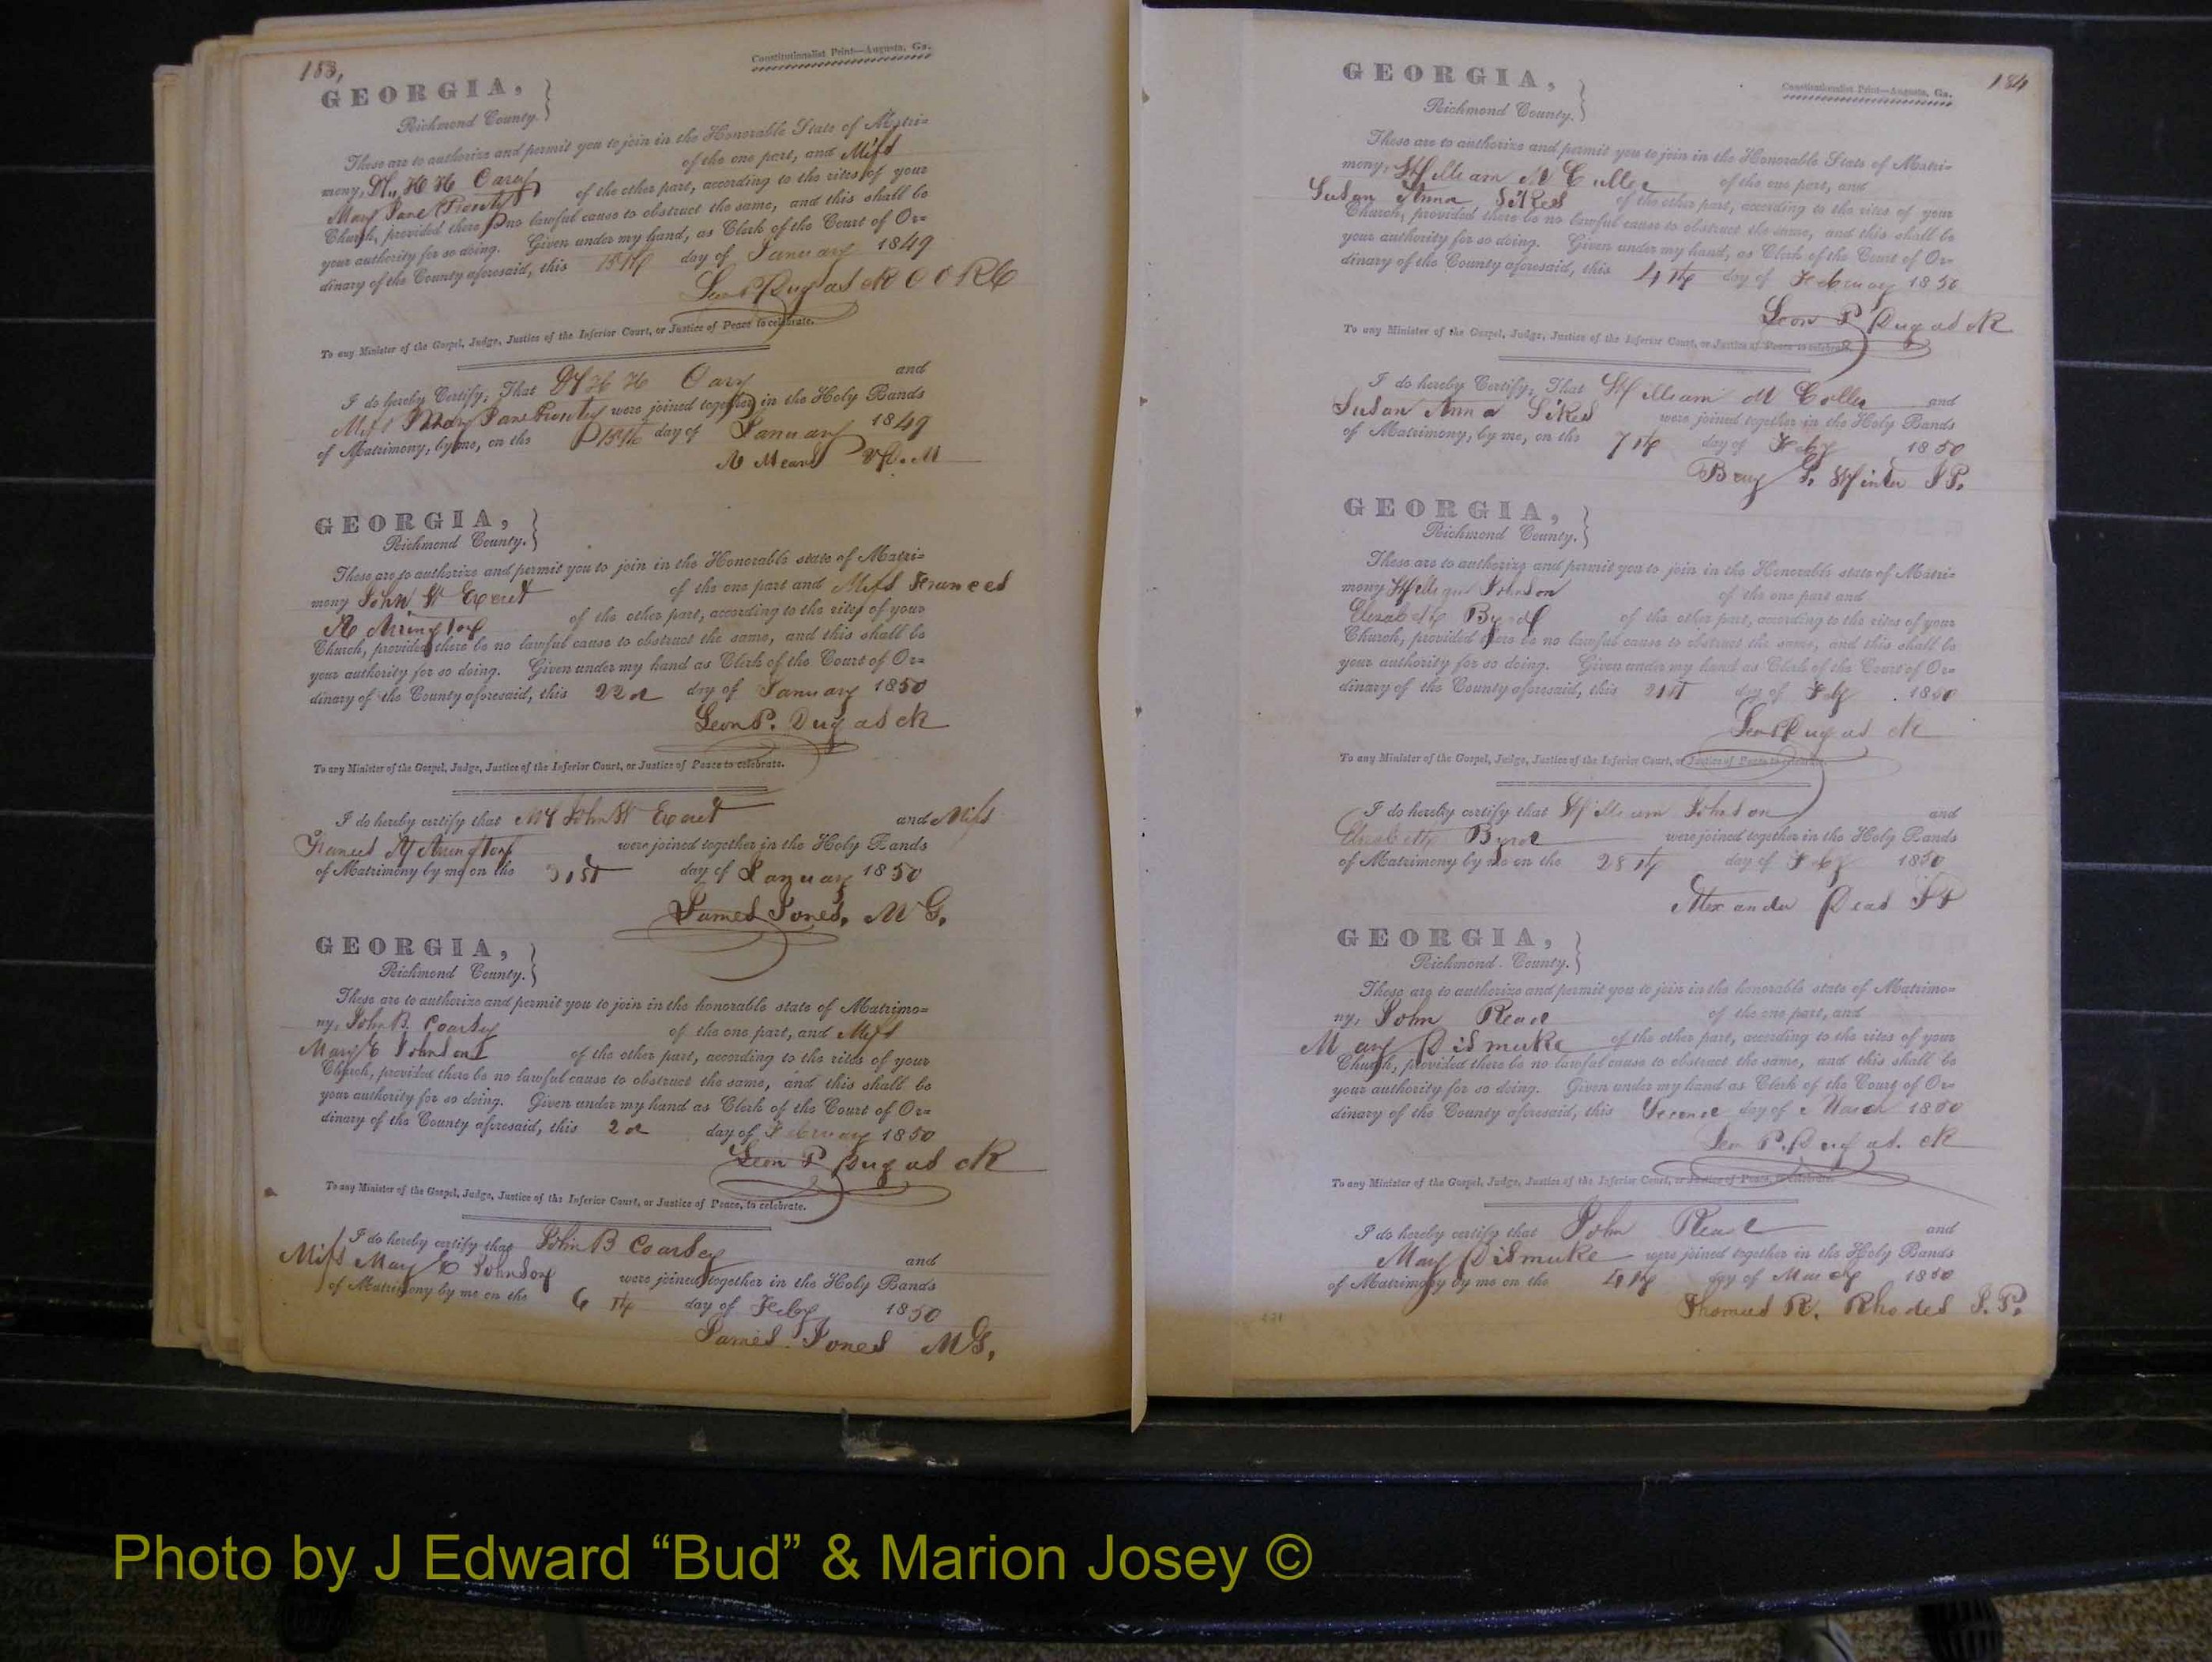 183,
Constitutionalist Print—Augusta, Ga.
GEORGIA,
Richmond County.
These are to authorize and permit you to join in the Honorable State of Matri-
mony, H H of the one part, and Miss
Mary Jane of the other part, according to the rites of your
Church, provided there be no lawful cause to obstruct the same, and this shall be
your authority for so doing. Given under my hand, as Clerk of the Court of Or-
dinary of the County aforesaid, this 15th day of January 1849
Leon P Dugas
To any Minister of the Gospel, Judge, Justice of the Inferior Court, or Justice of Peace to celebrate.
I do hereby Certify, That H H and
Miss Mary Jane were joined together in the Holy Bands
of Matrimony, by me, on the 15th day of January 1849
A Means
GEORGIA,
Richmond County.
These are to authorize and permit you to join in the Honorable state of Matri-
mony John W of the one part and Miss Frances
Arrington of the other part, according to the rites of your
Church, provided there be no lawful cause to obstruct the same, and this shall be
your authority for so doing. Given under my hand as Clerk of the Court of Or-
dinary of the County aforesaid, this 22d day of January 1850
Leon P. Dugas Clk
To any Minister of the Gospel, Judge, Justice of the Inferior Court, or Justice of Peace to celebrate.
I do hereby certify that Mr John W and Miss
Frances Arrington were joined together in the Holy Bands
of Matrimony by me on the 31st day of January 1850
James Jones, M G.
GEORGIA,
Richmond County.
These are to authorize and permit you to join in the honorable state of Matrimo-
ny, John B. Coarsey of the one part, and Miss
Mary E Johnson of the other part, according to the rites of your
Church, provided there be no lawful cause to obstruct the same, and this shall be
your authority for so doing. Given under my hand as Clerk of the Court of Or-
dinary of the County aforesaid, this 2d day of February 1850
Leon P Dugas Clk
To any Minister of the Gospel, Judge, Justice of the Inferior Court, or Justice of Peace, to celebrate.
I do hereby certify that John B Coarsey and
Miss Mary E Johnson were joined together in the Holy Bands
of Matrimony by me on the 6th day of Feby 1850
James Jones MG,
184
Constitutionalist Print—Augusta, Ga.
GEORGIA,
Richmond County.
These are to authorize and permit you to join in the Honorable State of Matri-
mony, William of the one part, and
Susan Anna Sikes of the other part, according to the rites of your
Church, provided there be no lawful cause to obstruct the same, and this shall be
your authority for so doing. Given under my hand, as Clerk of the Court of Or-
dinary of the County aforesaid, this 4th day of February 1850
Leon P Dugas Clk
To any Minister of the Gospel, Judge, Justice of the Inferior Court, or Justice of Peace to celebrate.
I do hereby Certify, That William and
Susan Anna Sikes were joined together in the Holy Bands
of Matrimony, by me, on the 7th day of Feby 1850
Winter J P.
GEORGIA,
Richmond County.
These are to authorize and permit you to join in the Honorable state of Matri-
mony William Johnson of the one part and
Elizabeth Byrd of the other part, according to the rites of your
Church, provided there be no lawful cause to obstruct the same, and this shall be
your authority for so doing. Given under my hand as Clerk of the Court of Or-
dinary of the County aforesaid, this 21st day of Feby 1850
Leon P Dugas Clk
To any Minister of the Gospel, Judge, Justice of the Inferior Court, or Justice of Peace to celebrate.
I do hereby certify that William Johnson and
Elizabeth Byrd were joined together in the Holy Bands
of Matrimony by me on the 28th day of Feby 1850
Alexander Deas JP
GEORGIA,
Richmond County.
These are to authorize and permit you to join in the honorable state of Matrimo-
ny, John of the one part, and
Mary Dismuke of the other part, according to the rites of your
Church, provided there be no lawful cause to obstruct the same, and this shall be
your authority for so doing. Given under my hand as Clerk of the Court of Or-
dinary of the County aforesaid, this Second day of March 1850
Leon P. Dugas. Clk
To any Minister of the Gospel, Judge, Justice of the Inferior Court, or Justice of Peace, to celebrate.
I do hereby certify that John and
Mary Dismuke were joined together in the Holy Bands
of Matrimony by me on the 4th day of March 1850
Thomas R. Rhodes J. P.
Photo by J Edward “Bud” & Marion Josey ©